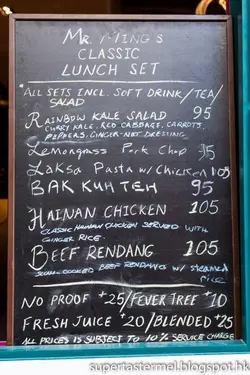 MR. MING'S
CLASSIC
LUNCH SET
*ALL SETS INCL. SOFT DRINK/TEA/
SALAD
RAINBOW KALE SALAD 95
CURRY KALE, RED CABBAGE, CARROTS,
PEPPERS, GINGER-NUT DRESSING
Lemongrass Pork Chop 95
LaKsa Pasta w/ Chicken 105
BAK KUH TEH 95
HAINAN CHICKEN 105
CLASSIC HAINAN CHICKEN SERVED WITH
GINGER RICE
BEEF RENDANG 105
SLOW-COOKED BEEF RENDANG w/ steamed
rice
NO PROOF +25/FEVER TREE +10
FRESH JUICE +20/BLENDED +25
ALL PRICES IS SUBJECT TO 10% SERVICE CHARGE
supertastermel.blogspot.hk